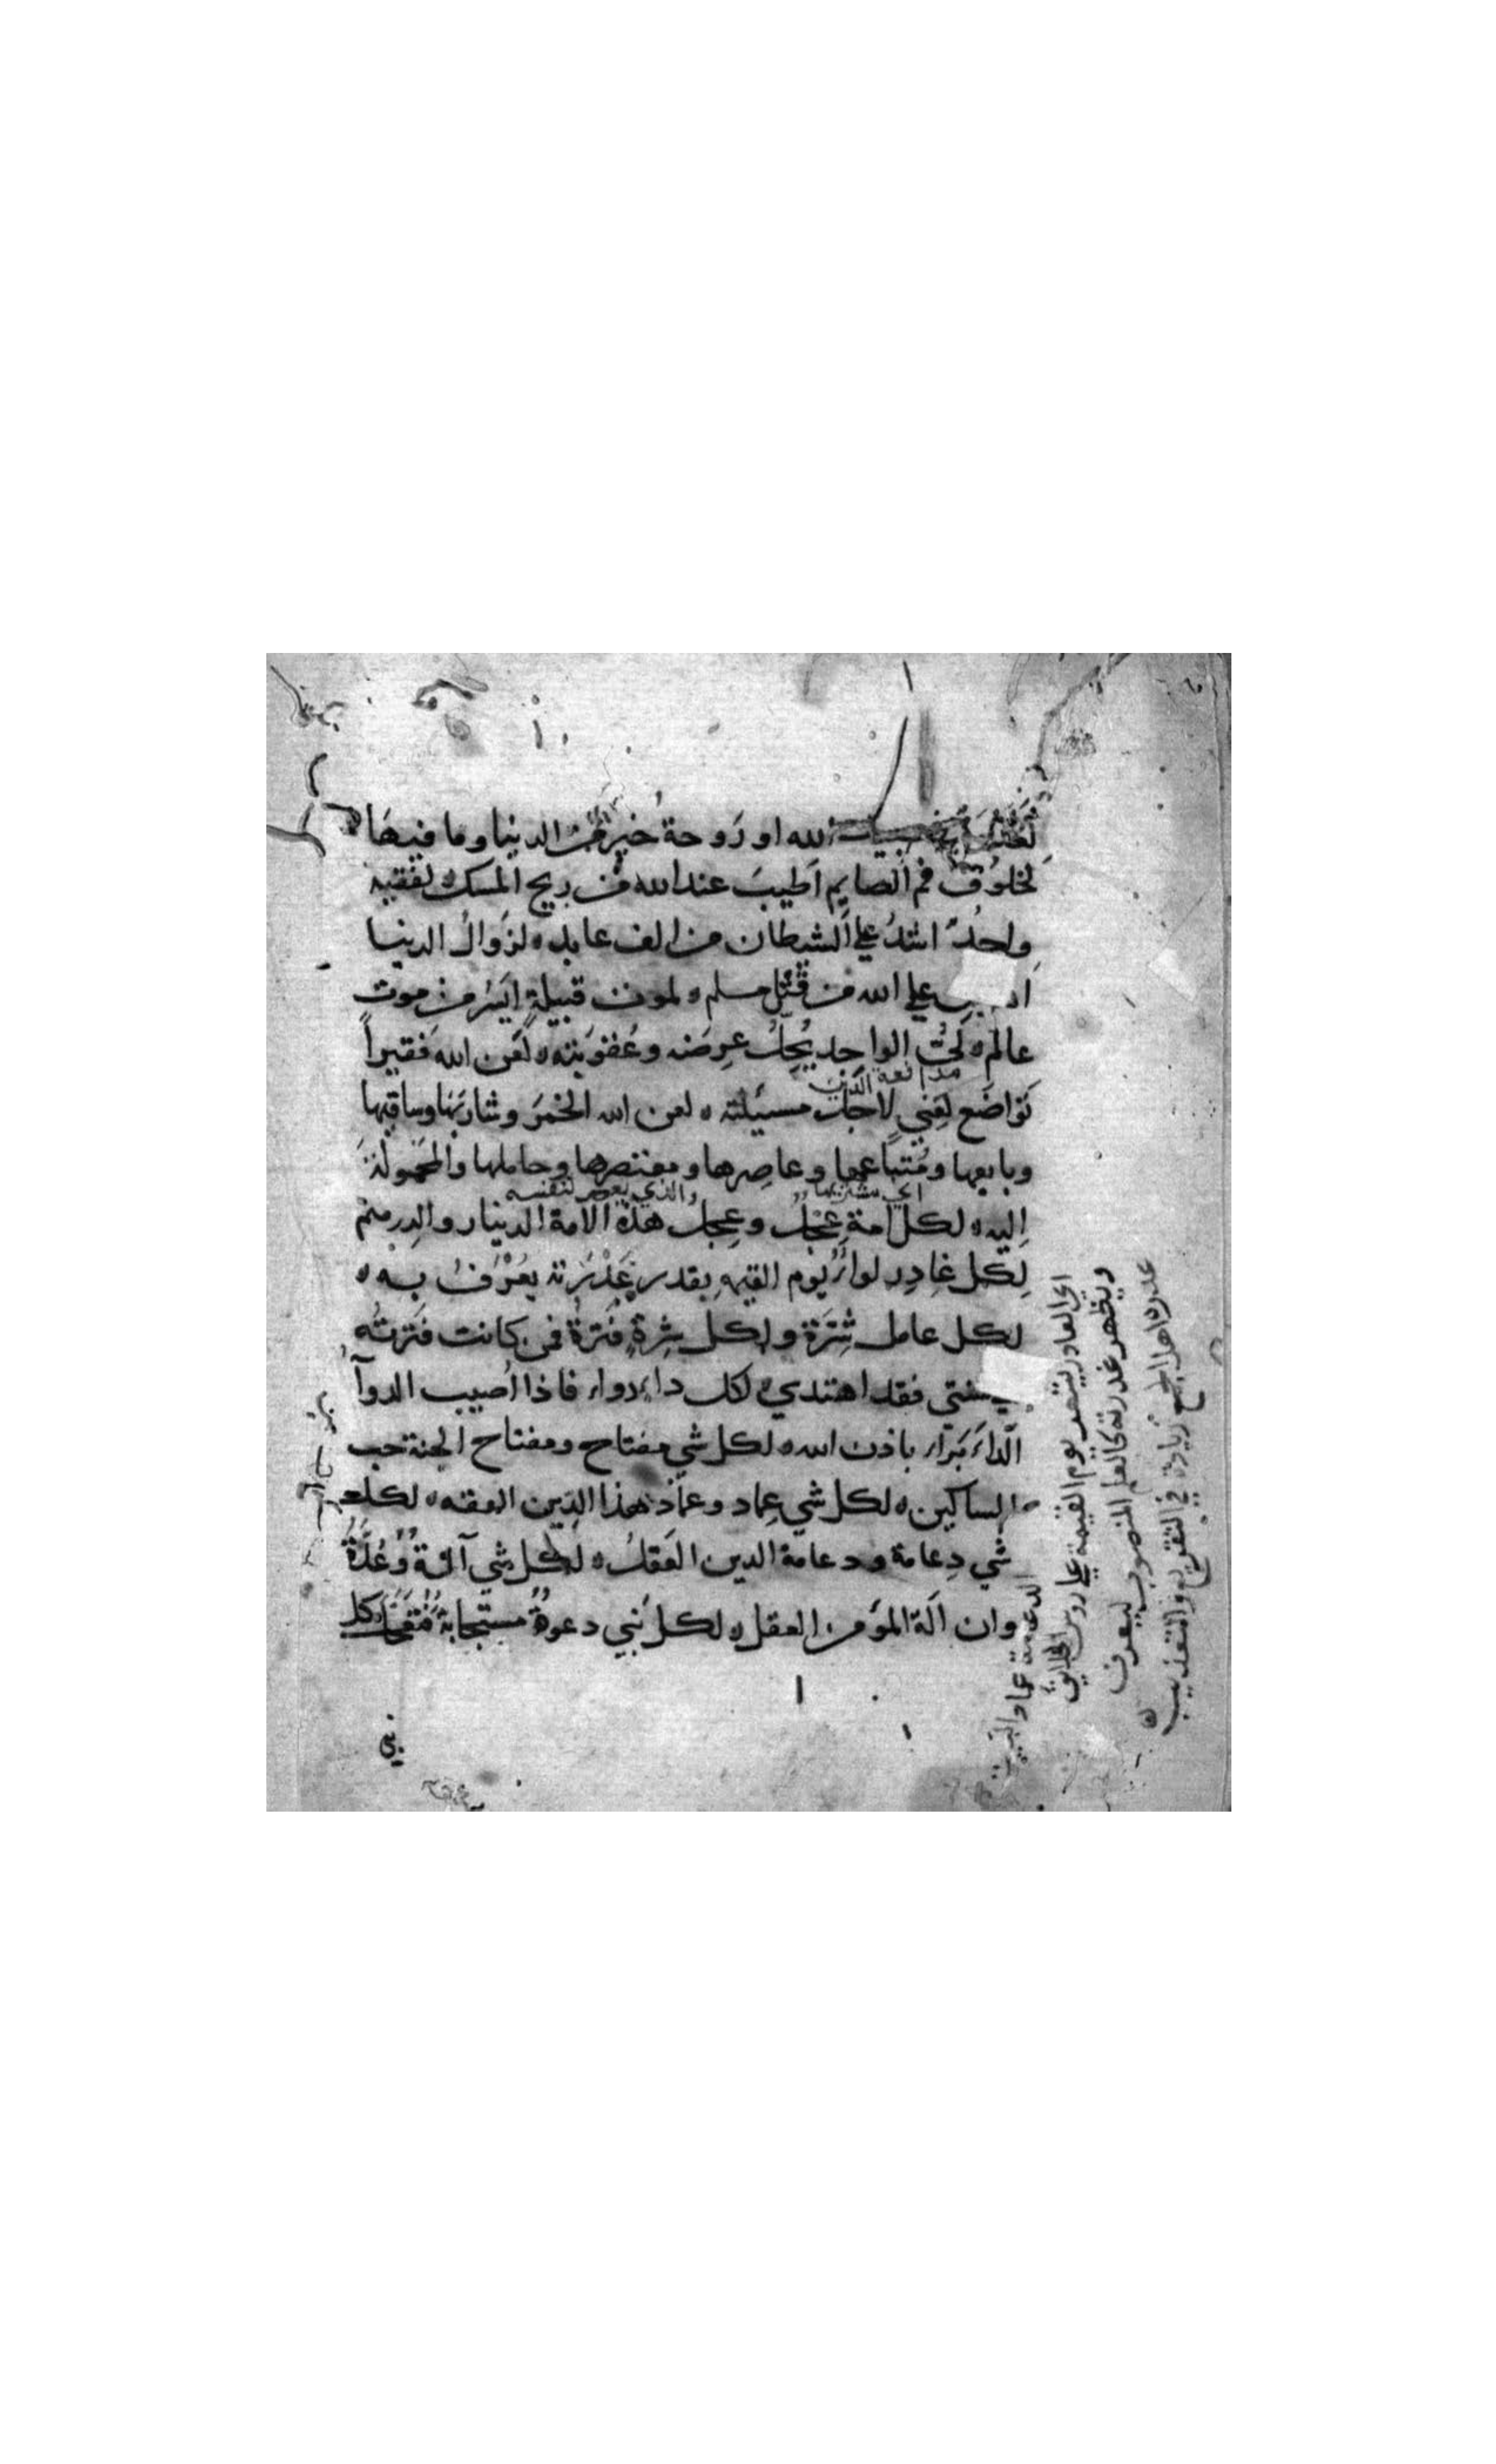 لغدوة في سبيل الله او رَوحة خير من الدنيا وما فيها
لخلوف فم الصايم اطيب عند الله من ريح المسك ه لفقيه
واحدٌ اشدُ علي الشيطان من الف عابد ه لزوال الدنيا
علي الله من قتل مسلم ه لموت قبيلةٍ ايسر من موت
عالم ه ليُّ الواجد يُحِلُ عِرضَه وعُقوبَته ه لعن الله فقيراً
مدافعة الدَّين
تواضَع لغِنيٍ لاجل مسيلته ه لعن الله الخمرَ وشاربَها وساقيها
وبايعها ومُتباعها وعاصِرها ومعتصرها وحاملها والمحمولةَ
اي مشتريها
والذي يعصر لنفسه
اليه ه لكل امة عِجلٌ وعِجل هذه الامة الدينار والدرهم
لِكل غادِر لواءٌ يوم القيمة بِقدر غَدْرَته يُعْرَفُ به ه
لكل عامل شِرَة ولكل شِرةٍ فَترةٌ فمن كانت فَترتُه
فقد اهتدي ه لكل داء دواء فاذا اُصيب الدوآ
الداءَ بَرَاء باذن الله ه لكل شي مفتاح ومفتاح الجنة حب
المساكين ه لكل شي عِماد وعمادُ هذا الدِين الفقه ه لكل
شي دِعامة ودعامة الدين العَقلُ ه لكل شي آلةٌ وعُدَّةٌ
وان آلة المؤمن العقل ه لكل نبي دعوةٌ مستجابة فتعجل كل
نبي
اي الغادر يشهر يوم القيمة علي روس الخلايق
ويظهر غدرته كالعلم المنصوب ليعرف
غدره اهل الجمع زيادة في التقريع والتعذيب
الدعامة عماد البيت